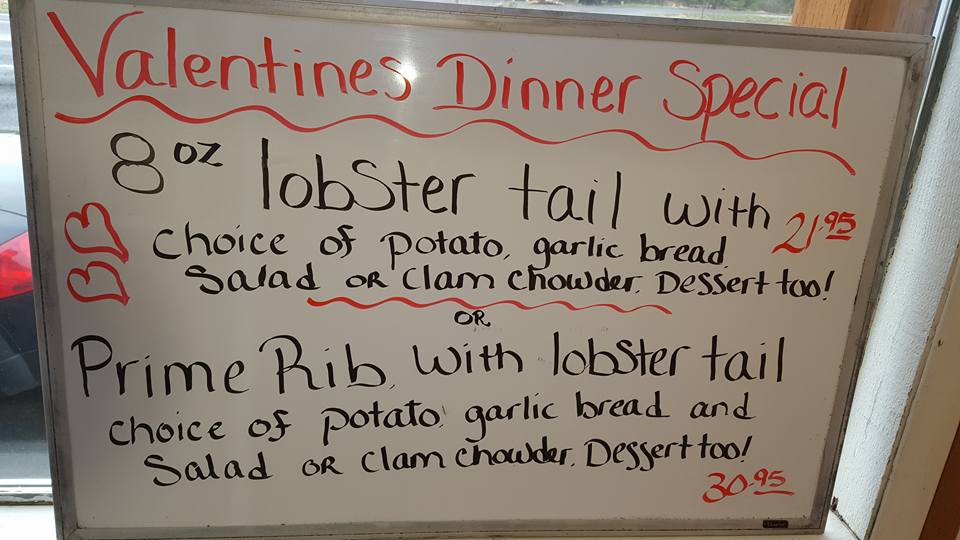 Valentines Dinner Special
8 oz lobster tail with
21.95
choice of potato, garlic bread
Salad OR Clam chowder. Dessert too!
OR
Prime Rib, with lobster tail
choice of potato, garlic bread and
Salad OR Clam chowder. Dessert too!
30.95